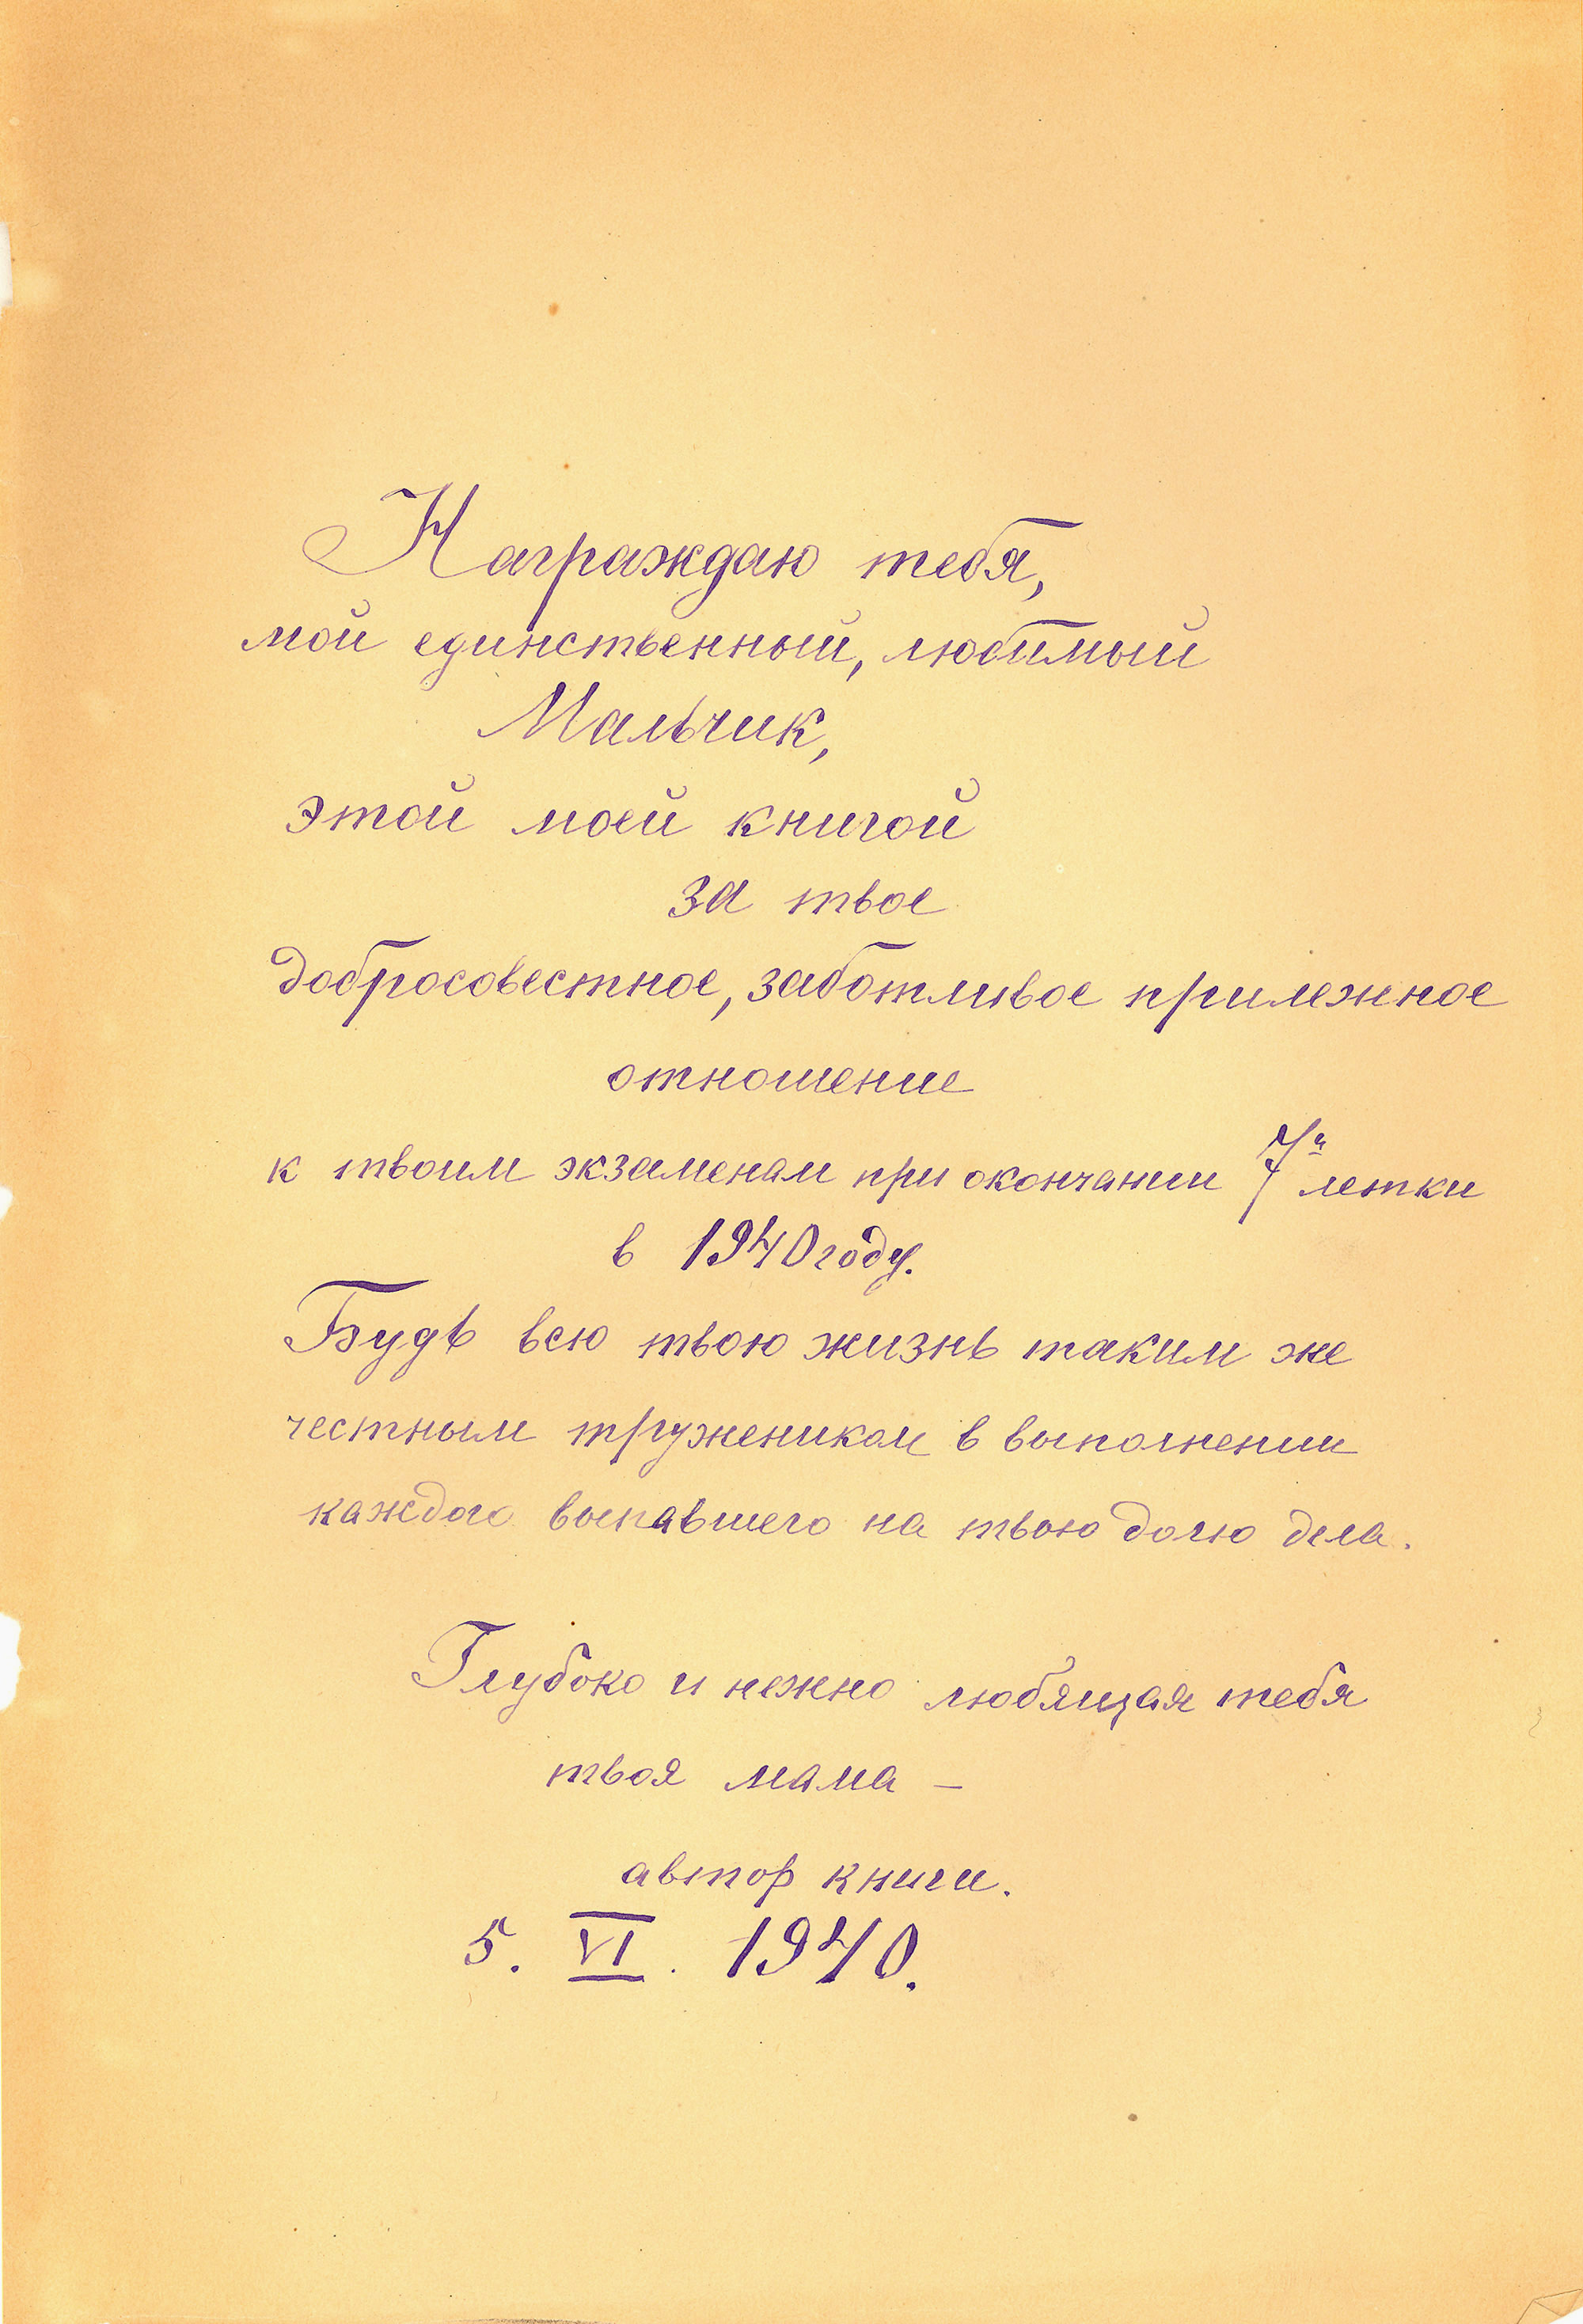 Награждаю тебя,
мой единственный, любимый
Мальчик,
этой моей книгой
за твое
добросовестное, заботливое прилежное
отношение
к твоим экзаменам при окончании 7и летки
в 1940 году.
Будь всю твою жизнь таким же
честным тружеником в выполнении
каждого выпавшего на твою долю дела.
Глубоко и нежно любящая тебя
твоя мама –
автор книги.
5. VI. 1940.